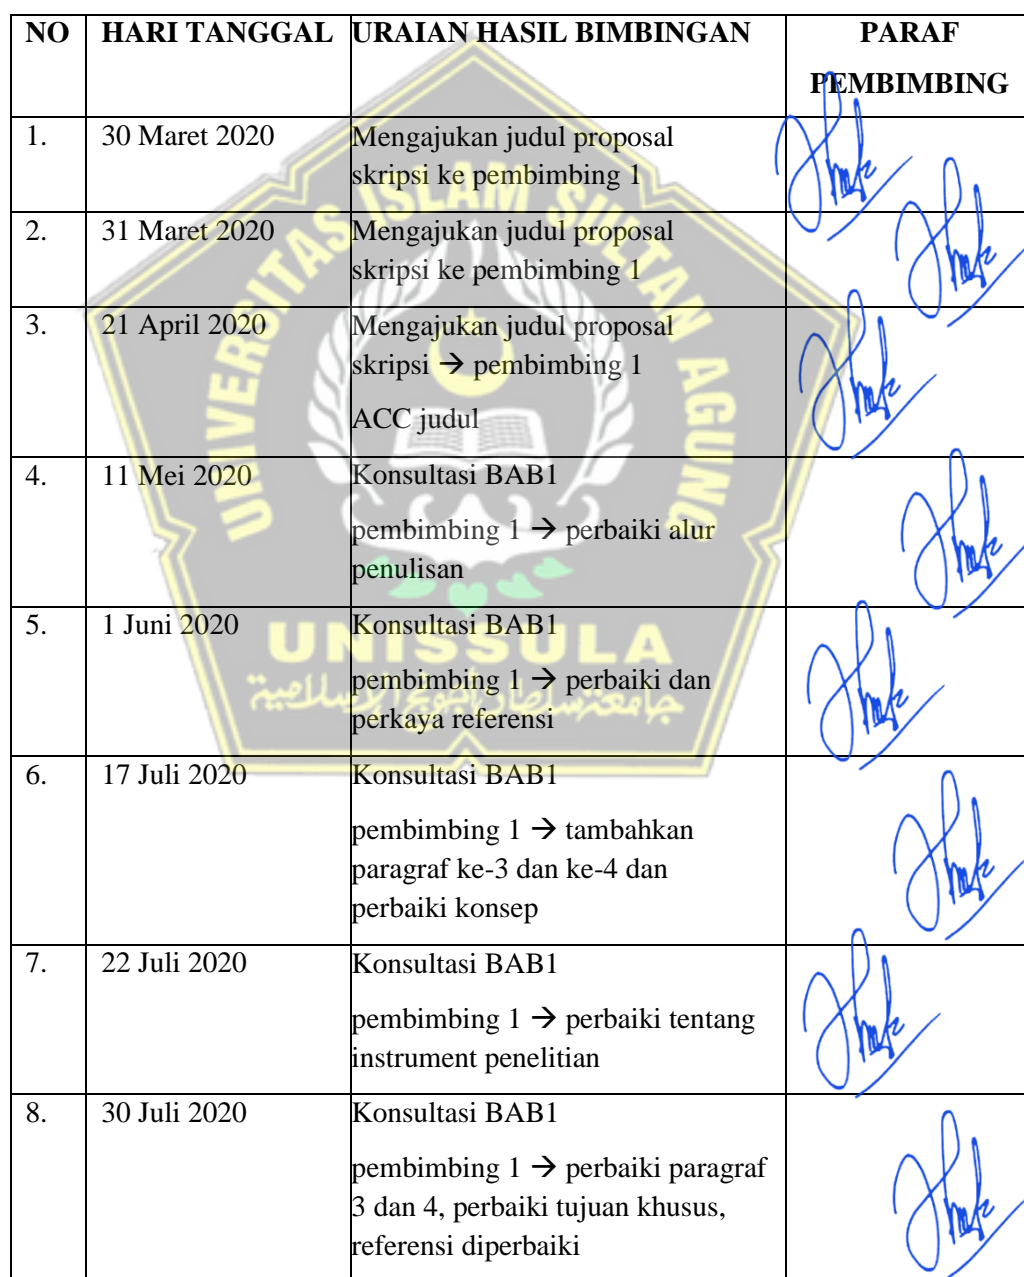 NO HARI TANGGAL URAIAN HASIL BIMBINGAN PARAF
PEMBIMBING
1. 30 Maret 2020 Mengajukan judul proposal
skripsi ke pembimbing 1
2. 31 Maret 2020 Mengajukan judul proposal
skripsi ke pembimbing 1
3. 21 April 2020 Mengajukan judul proposal
skripsi → pembimbing 1
ACC judul
4. 11 Mei 2020 Konsultasi BAB1
pembimbing 1 → perbaiki alur
penulisan
5. 1 Juni 2020 Konsultasi BAB1
pembimbing 1 → perbaiki dan
perkaya referensi
6. 17 Juli 2020 Konsultasi BAB1
pembimbing 1 → tambahkan
paragraf ke-3 dan ke-4 dan
perbaiki konsep
7. 22 Juli 2020 Konsultasi BAB1
pembimbing 1 → perbaiki tentang
instrument penelitian
8. 30 Juli 2020 Konsultasi BAB1
pembimbing 1 → perbaiki paragraf
3 dan 4, perbaiki tujuan khusus,
referensi diperbaiki
UNIVERSITAS ISLAM SULTAN AGUNG
UNISSULA